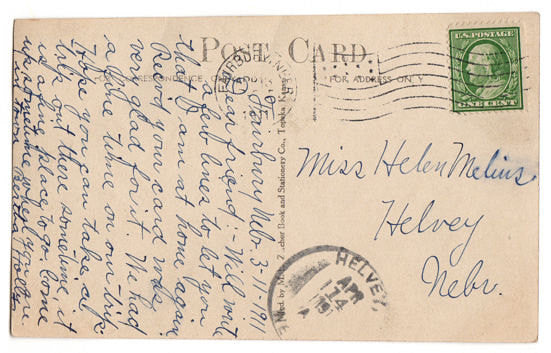 POST CARD
FOR ADDRESS ONLY
U.S. POSTAGE
ONE CENT
Fairbury Nebr 3-11-1911
Dear friend:- Will write
a few lines to let you
that I am at home again
Recvd your card was
very glad for it. We had
a fine time on our trip
Hope you can take a
trip out there sometime, it
is a fine place to go. Come
when you
Miss Helen Melius
Helvey
Nebr.
HELVEY
APR
14
Book and Stationery Co., Topeka